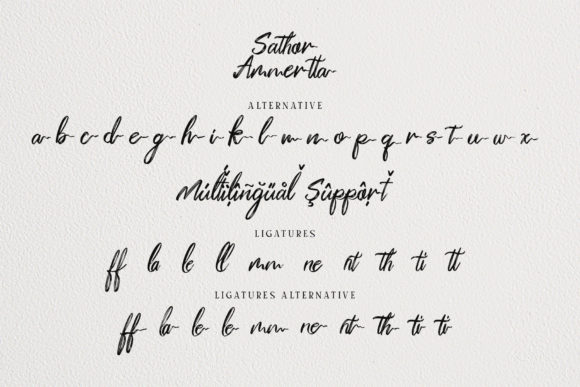 Sathor
Ammertta
ALTERNATIVE
a b c d e g h i k l m n o p q r s t u w x
LIGATURES
ff la le ll mm ne nt th ti tt
LIGATURES ALTERNATIVE
ff la le le mm ne nt th ti ti